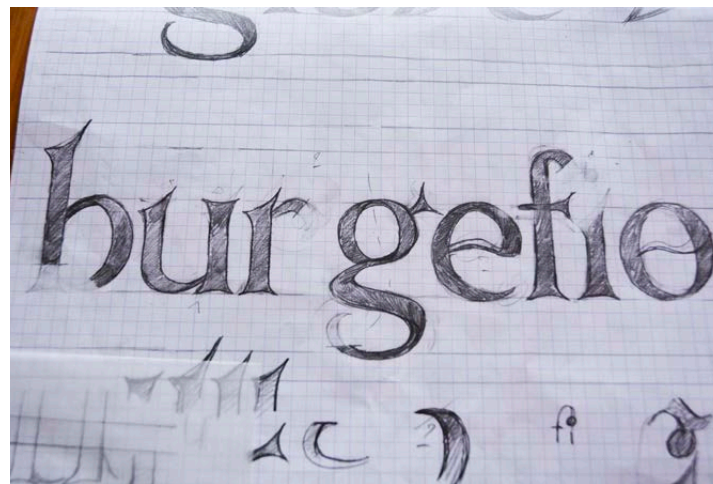 g
burgefio
fi